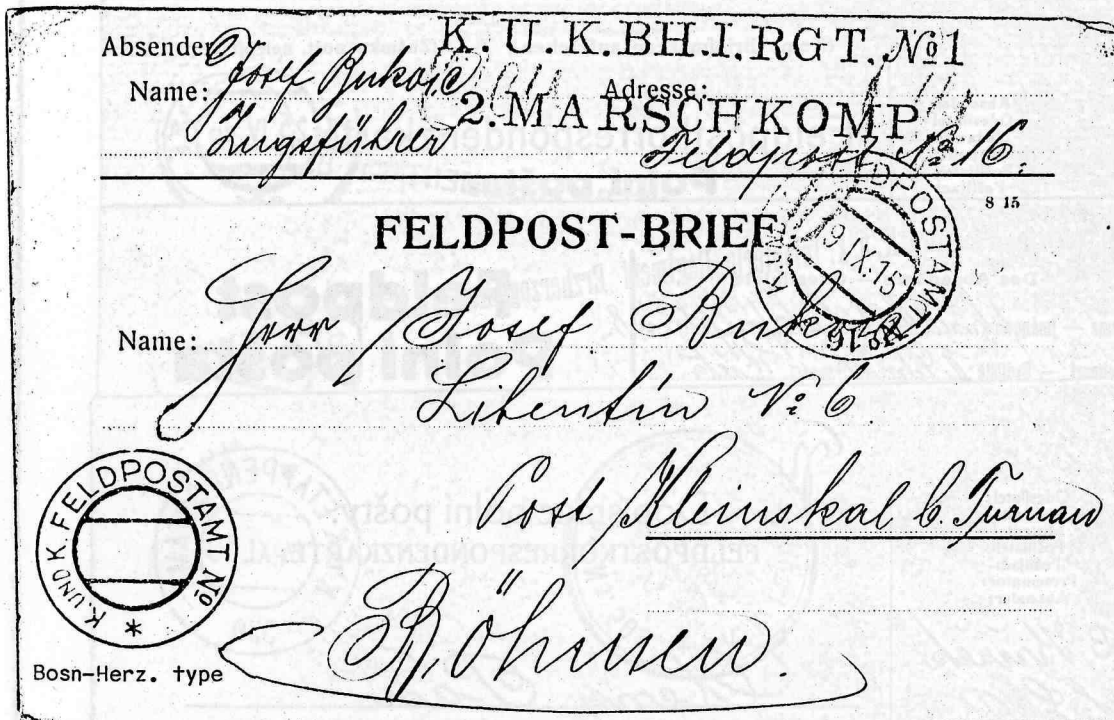 Absender
K.U.K.BH.I.RGT.№1
Name: Josef Bukovic Adresse:
2.MARSCHKOMP.
Zugsführer Feldpost № 16.
8 15
FELDPOST-BRIEF
K.UND K. FELDPOSTAMT № 16
9 IX.15
Name: Herr Josef
Libentin № 6
Post Kleinskal b. Turnau
K.UND K. FELDPOSTAMT №
*
Böhmen.
Bosn-Herz. type